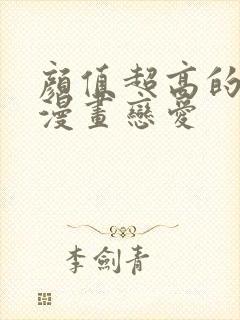 顏值超高的
漫畫戀愛
李劍青